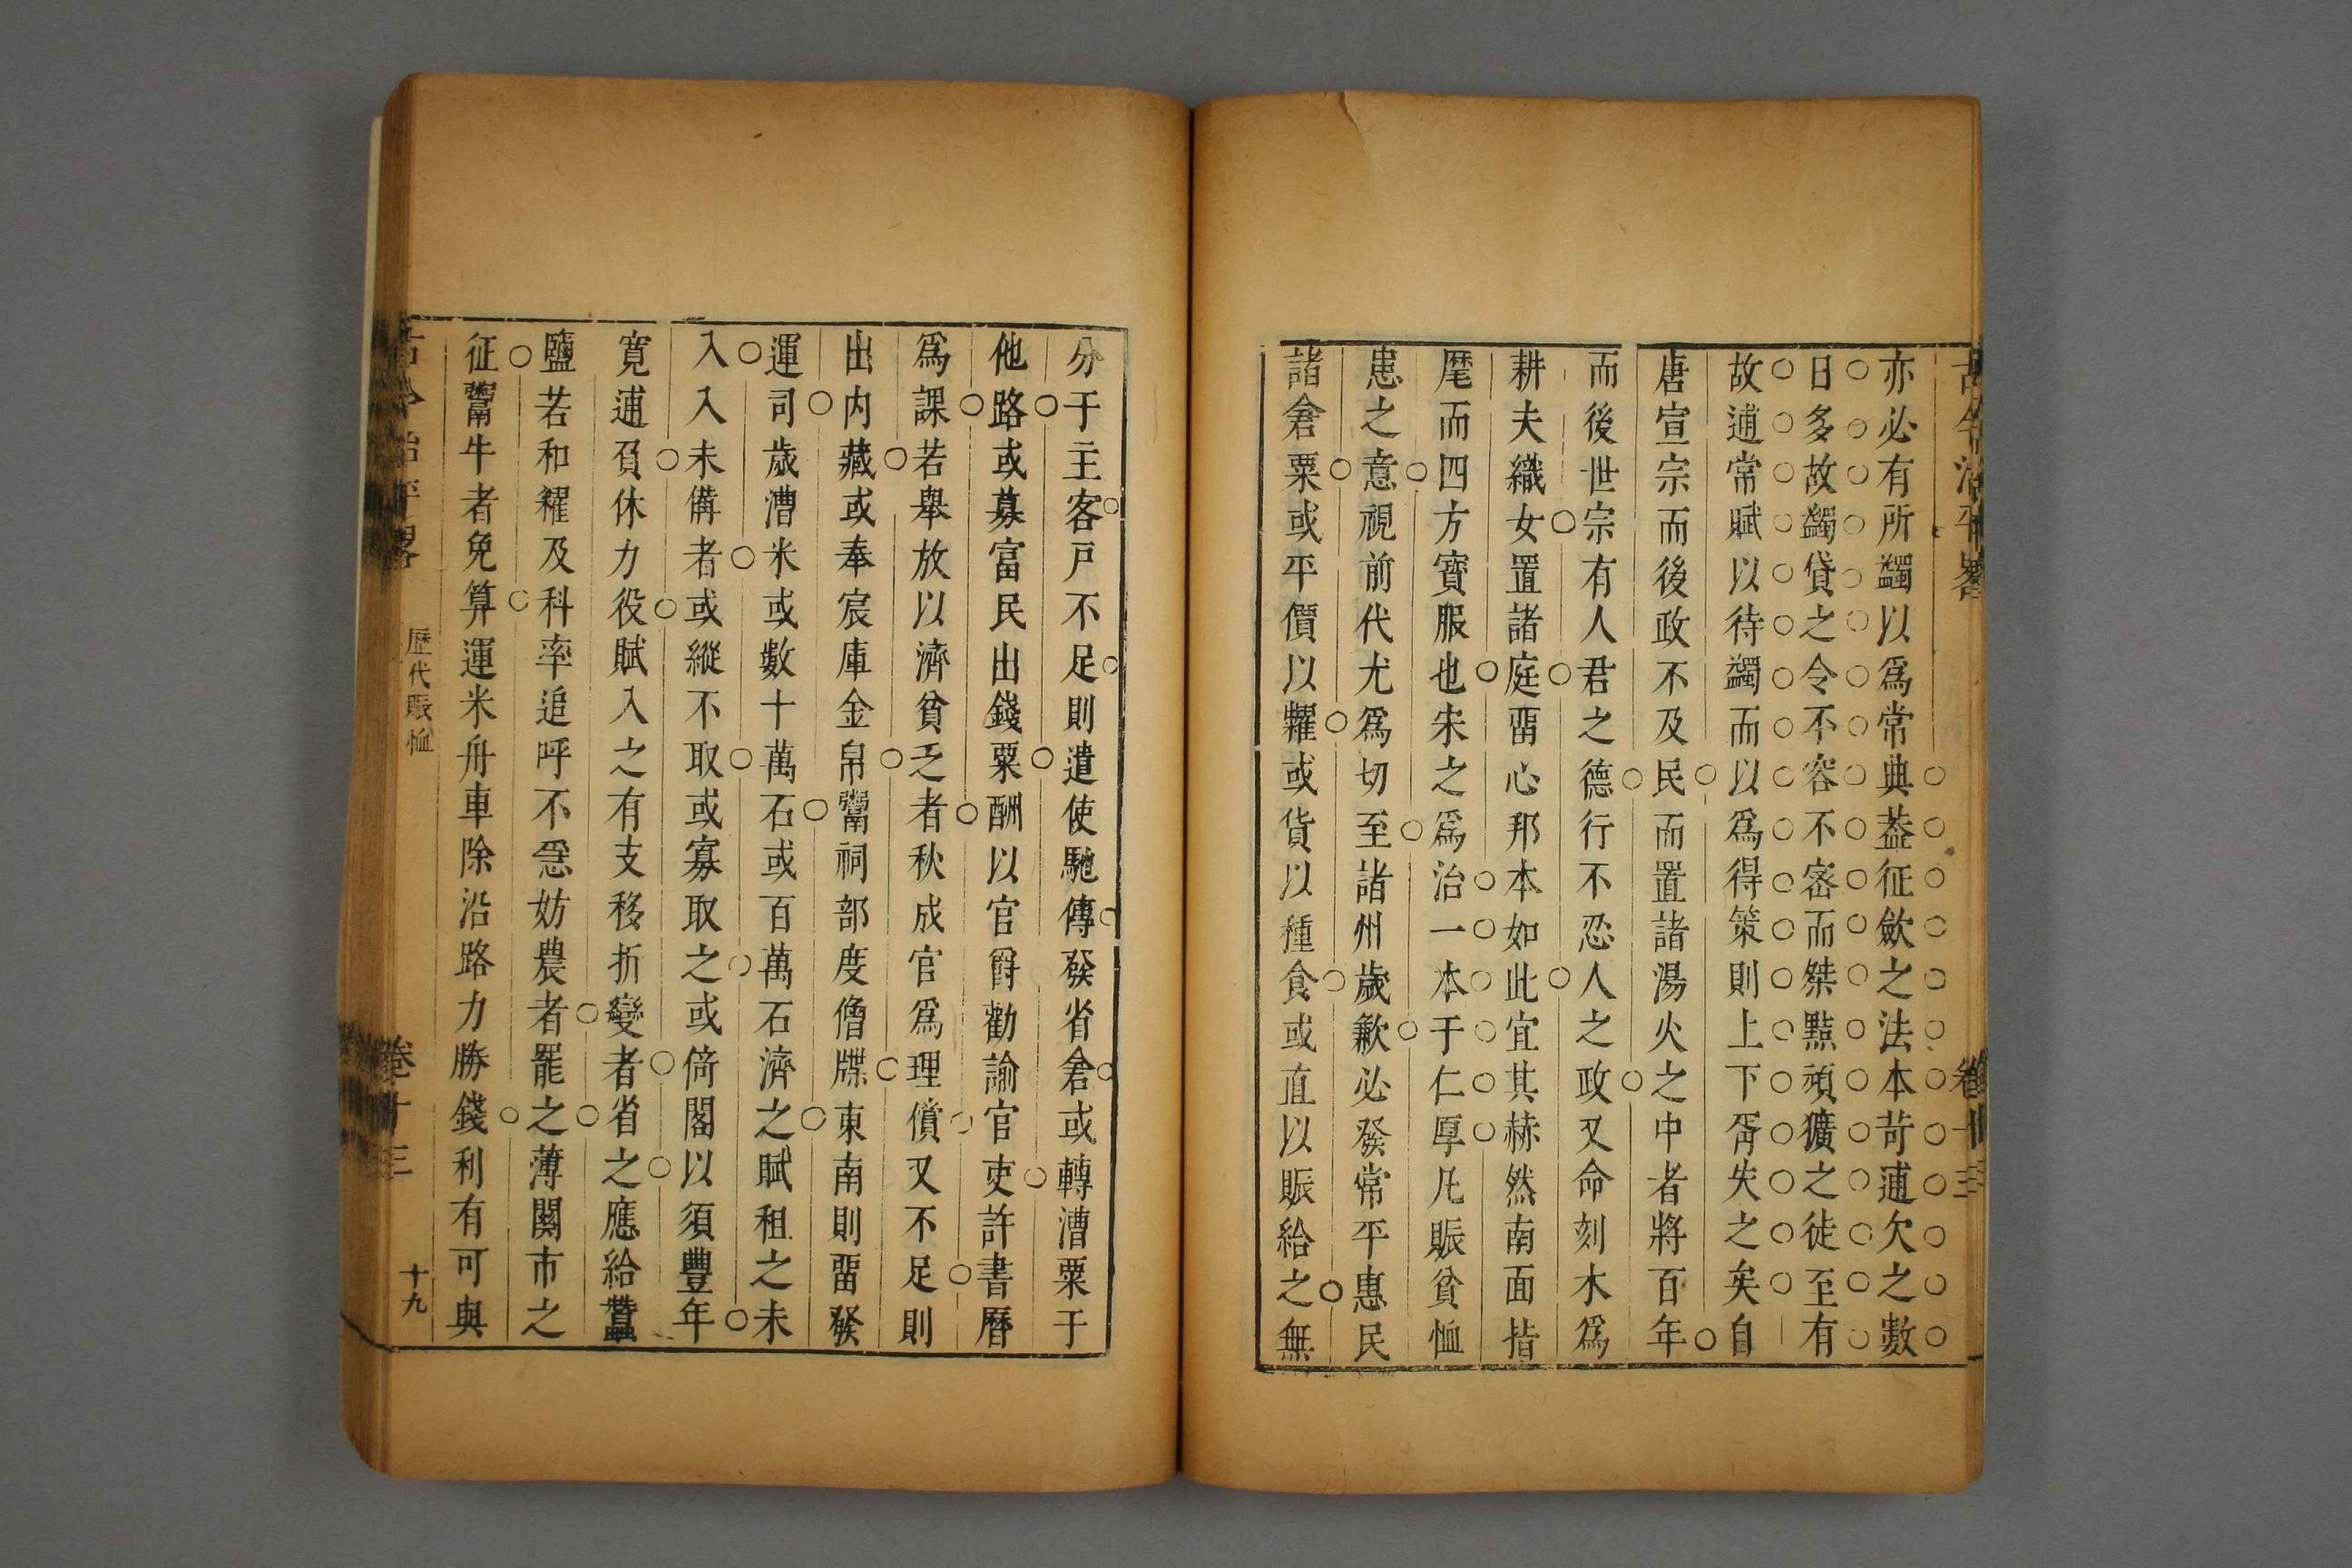 古今治平畧
卷十三
亦必有所蠲以爲常典葢征歛之法本苛逋欠之數
日多故蠲貸之令不容不密而桀黠頑獷之徒至有
故逋常賦以待蠲而以爲得策則上下胥失之矣自
唐宣宗而後政不及民而置諸湯火之中者將百年
而後世宗有人君之德行不忍人之政又命刻木爲
耕夫織女置諸庭畱心邦本如此宜其赫然南面指
麾而四方賓服也宋之爲治一本于仁厚凡賑貧恤
患之意視前代尤爲切至諸州歲歉必發常平惠民
諸倉粟或平價以糶或貨以種食或直以賑給之無
分于主客戸不足則遣使馳傳發省倉或轉漕粟于
他路或募富民出錢粟酬以官爵勸諭官吏許書曆
爲課若舉放以濟貧乏者秋成官爲理償又不足則
出内藏或奉宸庫金帛鬻祠部度僧牒東南則畱發
運司歲漕米或數十萬石或百萬石濟之賦租之未
入入未備者或縱不取或寡取之或倚閣以須豐年
寛逋負休力役賦入之有支移折變者省之應給蠶
鹽若和糴及科率追呼不急妨農者罷之薄關市之
征鬻牛者免算運米舟車除沿路力勝錢利有可與
古今治平畧
歷代賑恤
卷十三
十九